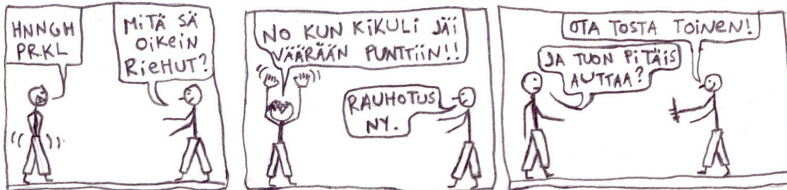 HNNGH
PRKL
MITÄ SÄ
OIKEIN
RIEHUT?
NO KUN KIKULI JÄI
VÄÄRÄÄN PUNTTIIN!!
RAUHOTUS
NY.
OTA TOSTA TOINEN!
JA TUON PITÄIS
AUTTAA?